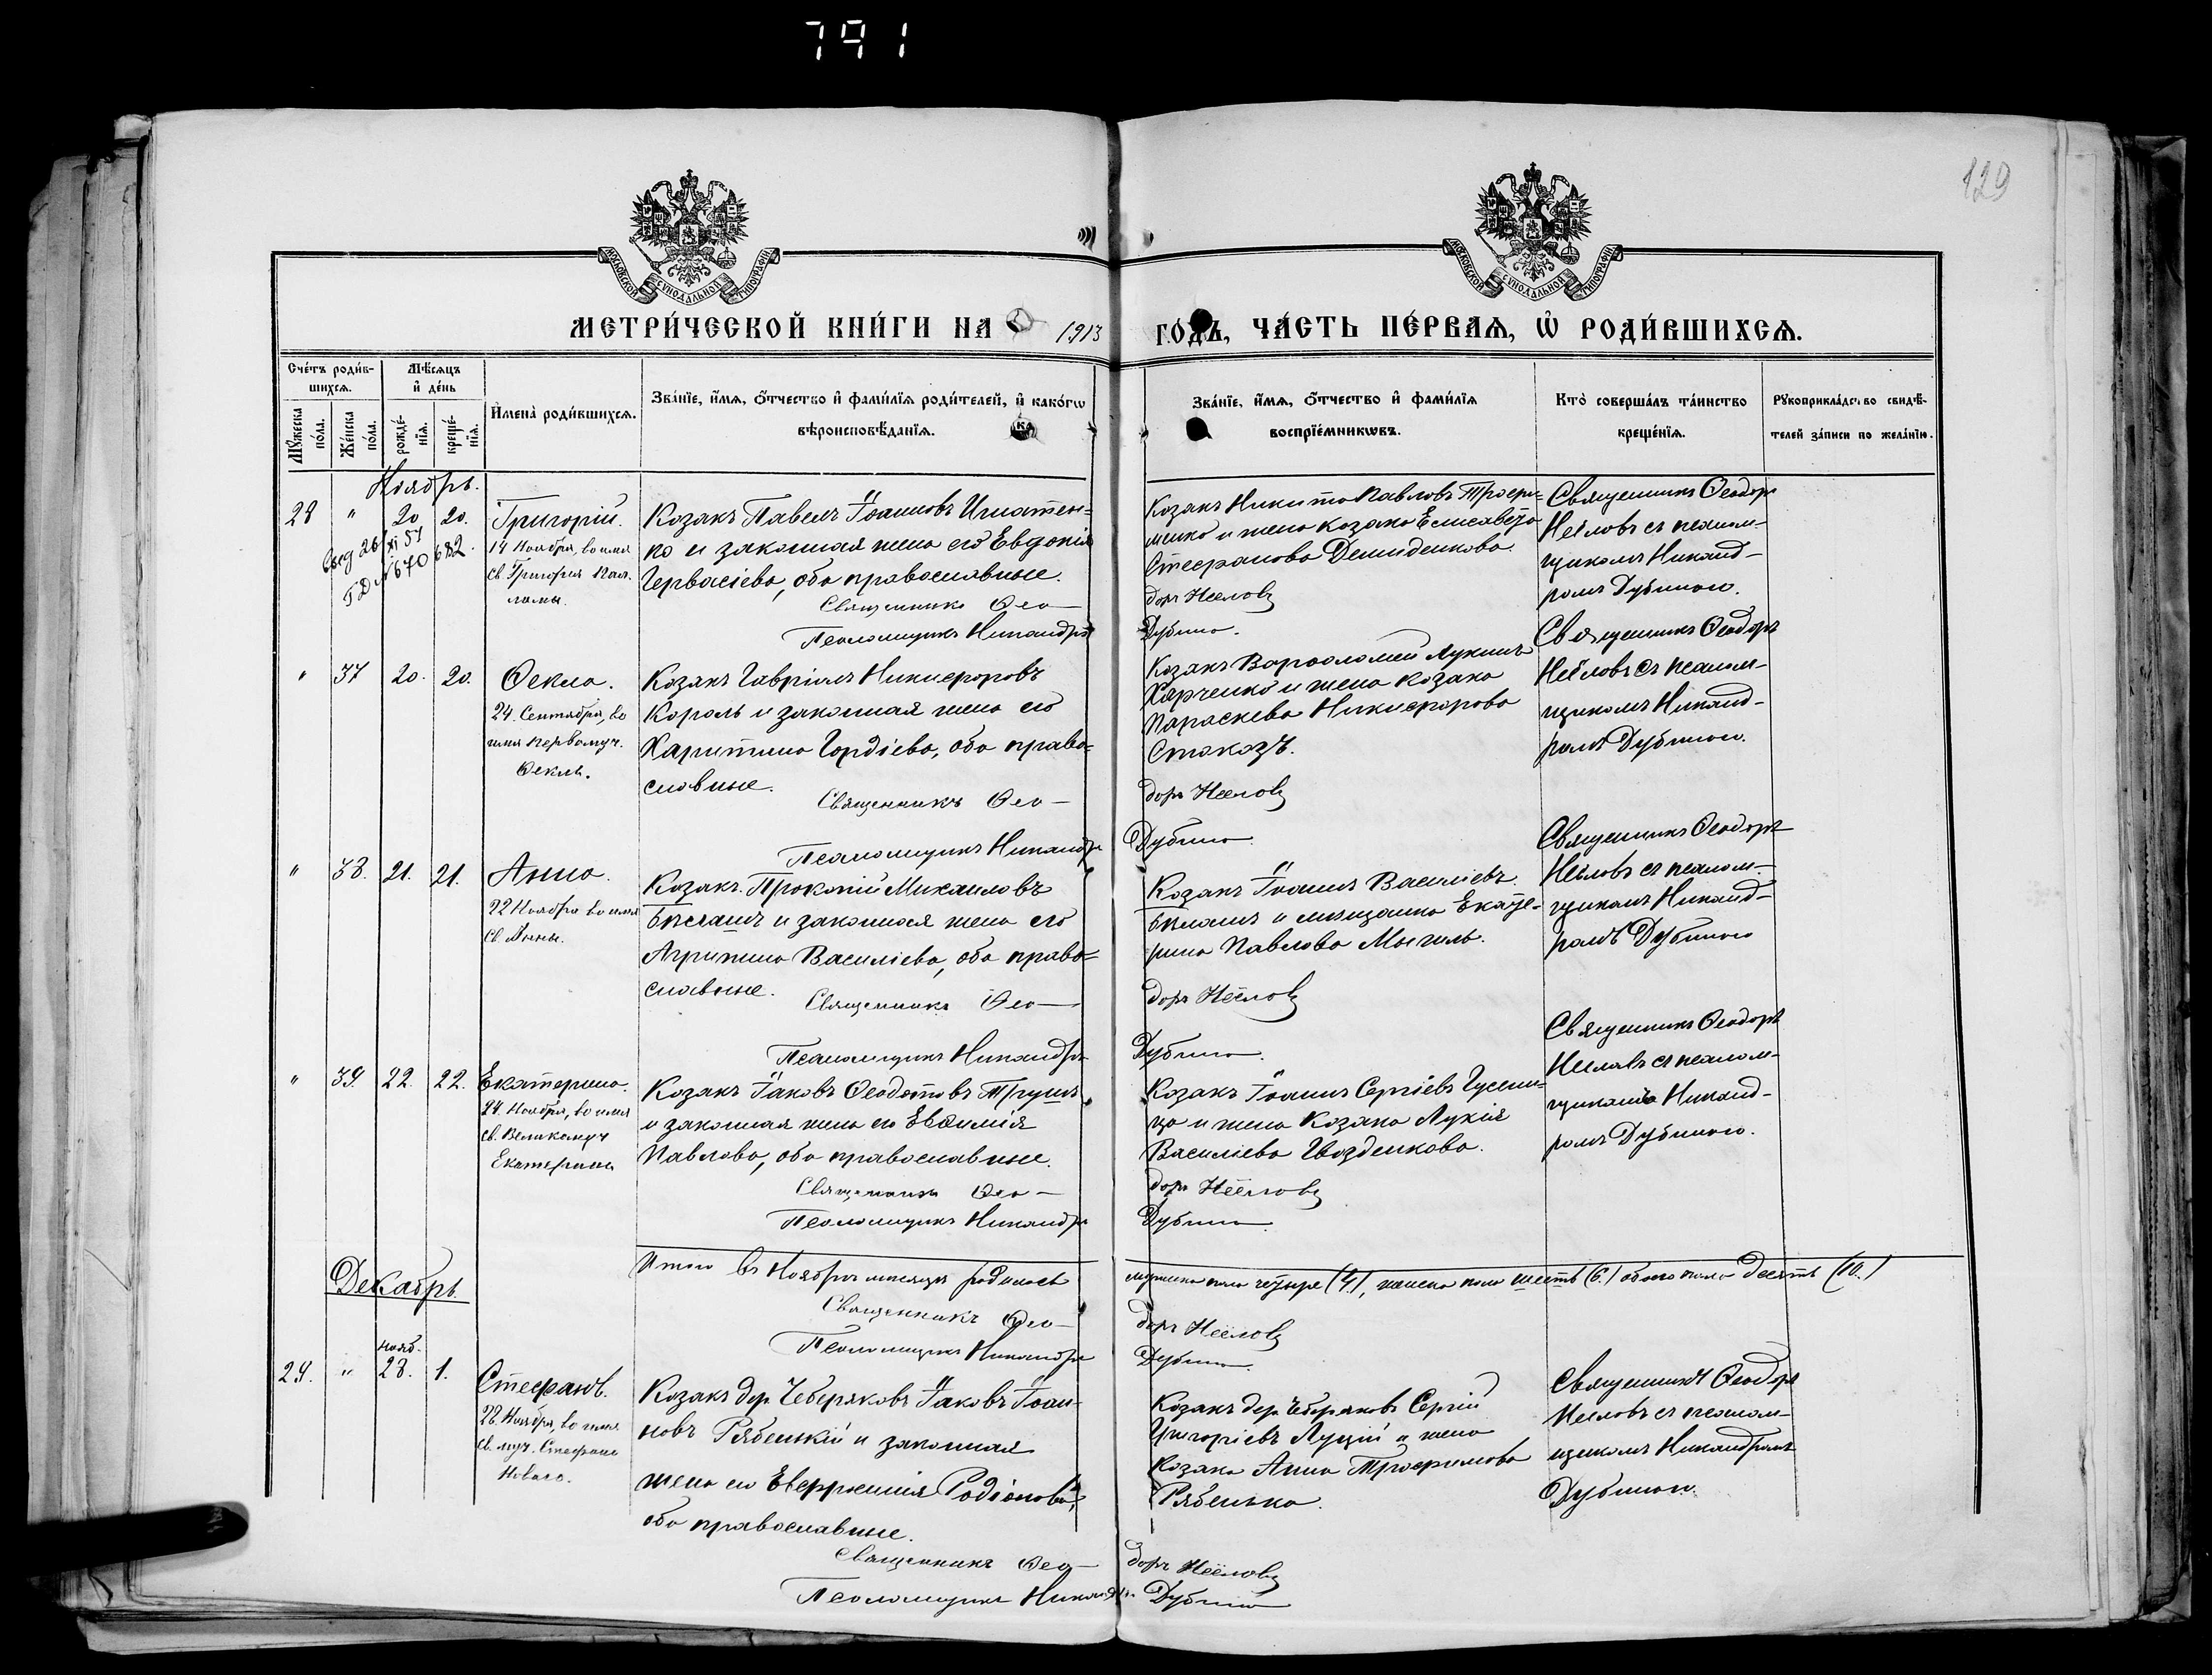 791
129
МОСКОВСКОЙ СѴНОДАЛЬНОЙ ТИПОГРАФІИ
МОСКОВСКОЙ СѴНОДАЛЬНОЙ ТИПОГРАФІИ
МЕТРИ́ЧЕСКОЙ КНИ́ГИ НА 1913 ГО́ДЪ, ЧА́СТЬ ПЕ́РВАѦ, Ѡ РОДИ́ВШИХСѦ.
Сче́тъ роди́в-
шихсѧ.
Мѣ́сѧцъ
и҆ де́нь
Мꙋ́жеска
по́ла.
Же́нска
по́ла.
рожде́-
нїѧ.
креще́-
нїѧ.
И҆мена̀ роди́вшихсѧ.
Зва́нїе, и҆́мѧ, ѻ҆́тчество и҆ фами́лїѧ роди́телей, и҆ како́гѡ
вѣроисповѣ́данїѧ.
Зва́нїе, и҆́мѧ, ѻ҆́тчество и҆ фами́лїѧ
воспрїе́мникѡвъ.
Кто̀ соверша́лъ та́инство
креще́нїѧ.
Рꙋкоприкла́дство свидѣ́-
телей за́писи по жела́нїю.
Ноябрь.
28 " 20 20.
Григорій.
14 Ноября, во имя
Св. Григорія Пала-
мы.
Козакъ Павелъ Іоанновъ Игнатен-
ко и законная жена его Евдокія
Гервасіева, оба православные.
Священникъ Ѳео-
Псаломщикъ Никандръ
Козакъ Никита Павловъ Трофи-
менко и жена козака Елисавета
Стефанова Демиденкова.
доръ Неёловъ
Дубина.
Священникъ Ѳеодоръ
Неёловъ съ псалом-
щикомъ Никанд-
ромъ Дубиною.
" 37 20. 20.
Ѳекла.
24. Сентября, во
имя первомуч.
Ѳеклы.
Козакъ Гавріилъ Никифоровъ
Король и законная жена его
Харитина Гордіева, оба право-
славные.
Священникъ Ѳео-
Псаломщикъ Никандръ
Козакъ Варѳоломей Лукинъ
Харченко и жена козака
Параскева Никифорова
Стоказъ.
доръ Неёловъ
Дубина.
Священникъ Ѳеодоръ
Неёловъ съ псалом-
щикомъ Никанд-
ромъ Дубиною.
" 38. 21. 21.
Анна.
22 Ноября во имя
Св. Анны.
Козакъ Прокопій Михаиловъ
и законная жена его
Агрипина Василіева, оба право-
славные.
Священникъ Ѳео-
Псаломщикъ Никандръ
Козакъ Іоаннъ Василіевъ
и мещанка Екате-
рина Павлова
доръ Неёловъ
Дубина.
Священникъ Ѳеодоръ
Неёловъ съ псалом-
щикомъ Никанд-
ромъ Дубиною
" 39. 22. 22.
Екатерина.
24. Ноября, во имя
св. Великомуч
Екатерины
Козакъ Іаковъ Ѳеодотовъ Трушъ
и законная жена его Евѳимія
Павлова, оба православные.
Священникъ Ѳео-
Псаломщикъ Никандръ
Козакъ Іоаннъ Сергіевъ Гусени-
ца и жена козака Лукія
Василіева Гвозденкова.
доръ Неёловъ
Дубина.
Священникъ Ѳеодоръ
Неёловъ съ псалом-
щикомъ Никанд-
ромъ Дубиною.
Итого въ Ноябрѣ месяцѣ родилось мужеска пола четыре (4.), женска пола шесть (6.) обоего пола десять (10.)
Священникъ Ѳео- доръ Неёловъ
Псаломщикъ Никандръ Дубина.
Декабрь.
нояб.
29. " 28. 1.
Стефанъ.
28. Ноября, во имя
св. муч. Стефана
Новаго.
Козакъ дер. Чеберяковъ Іаковъ Іоан-
новъ Рябенькій и законная
жена его Евфросинія Родіонова,
оба православные.
Священникъ Ѳео-
Псаломщикъ Никандръ
Козакъ дер. Чеберяковъ Сергій
Григоріевъ Луцій и жена
козака Анна Трофимова
Рябенька.
доръ Неёловъ
Дубина
Священникъ Ѳеодоръ
Неёловъ съ псалом-
щикомъ Никандромъ
Дубиною.